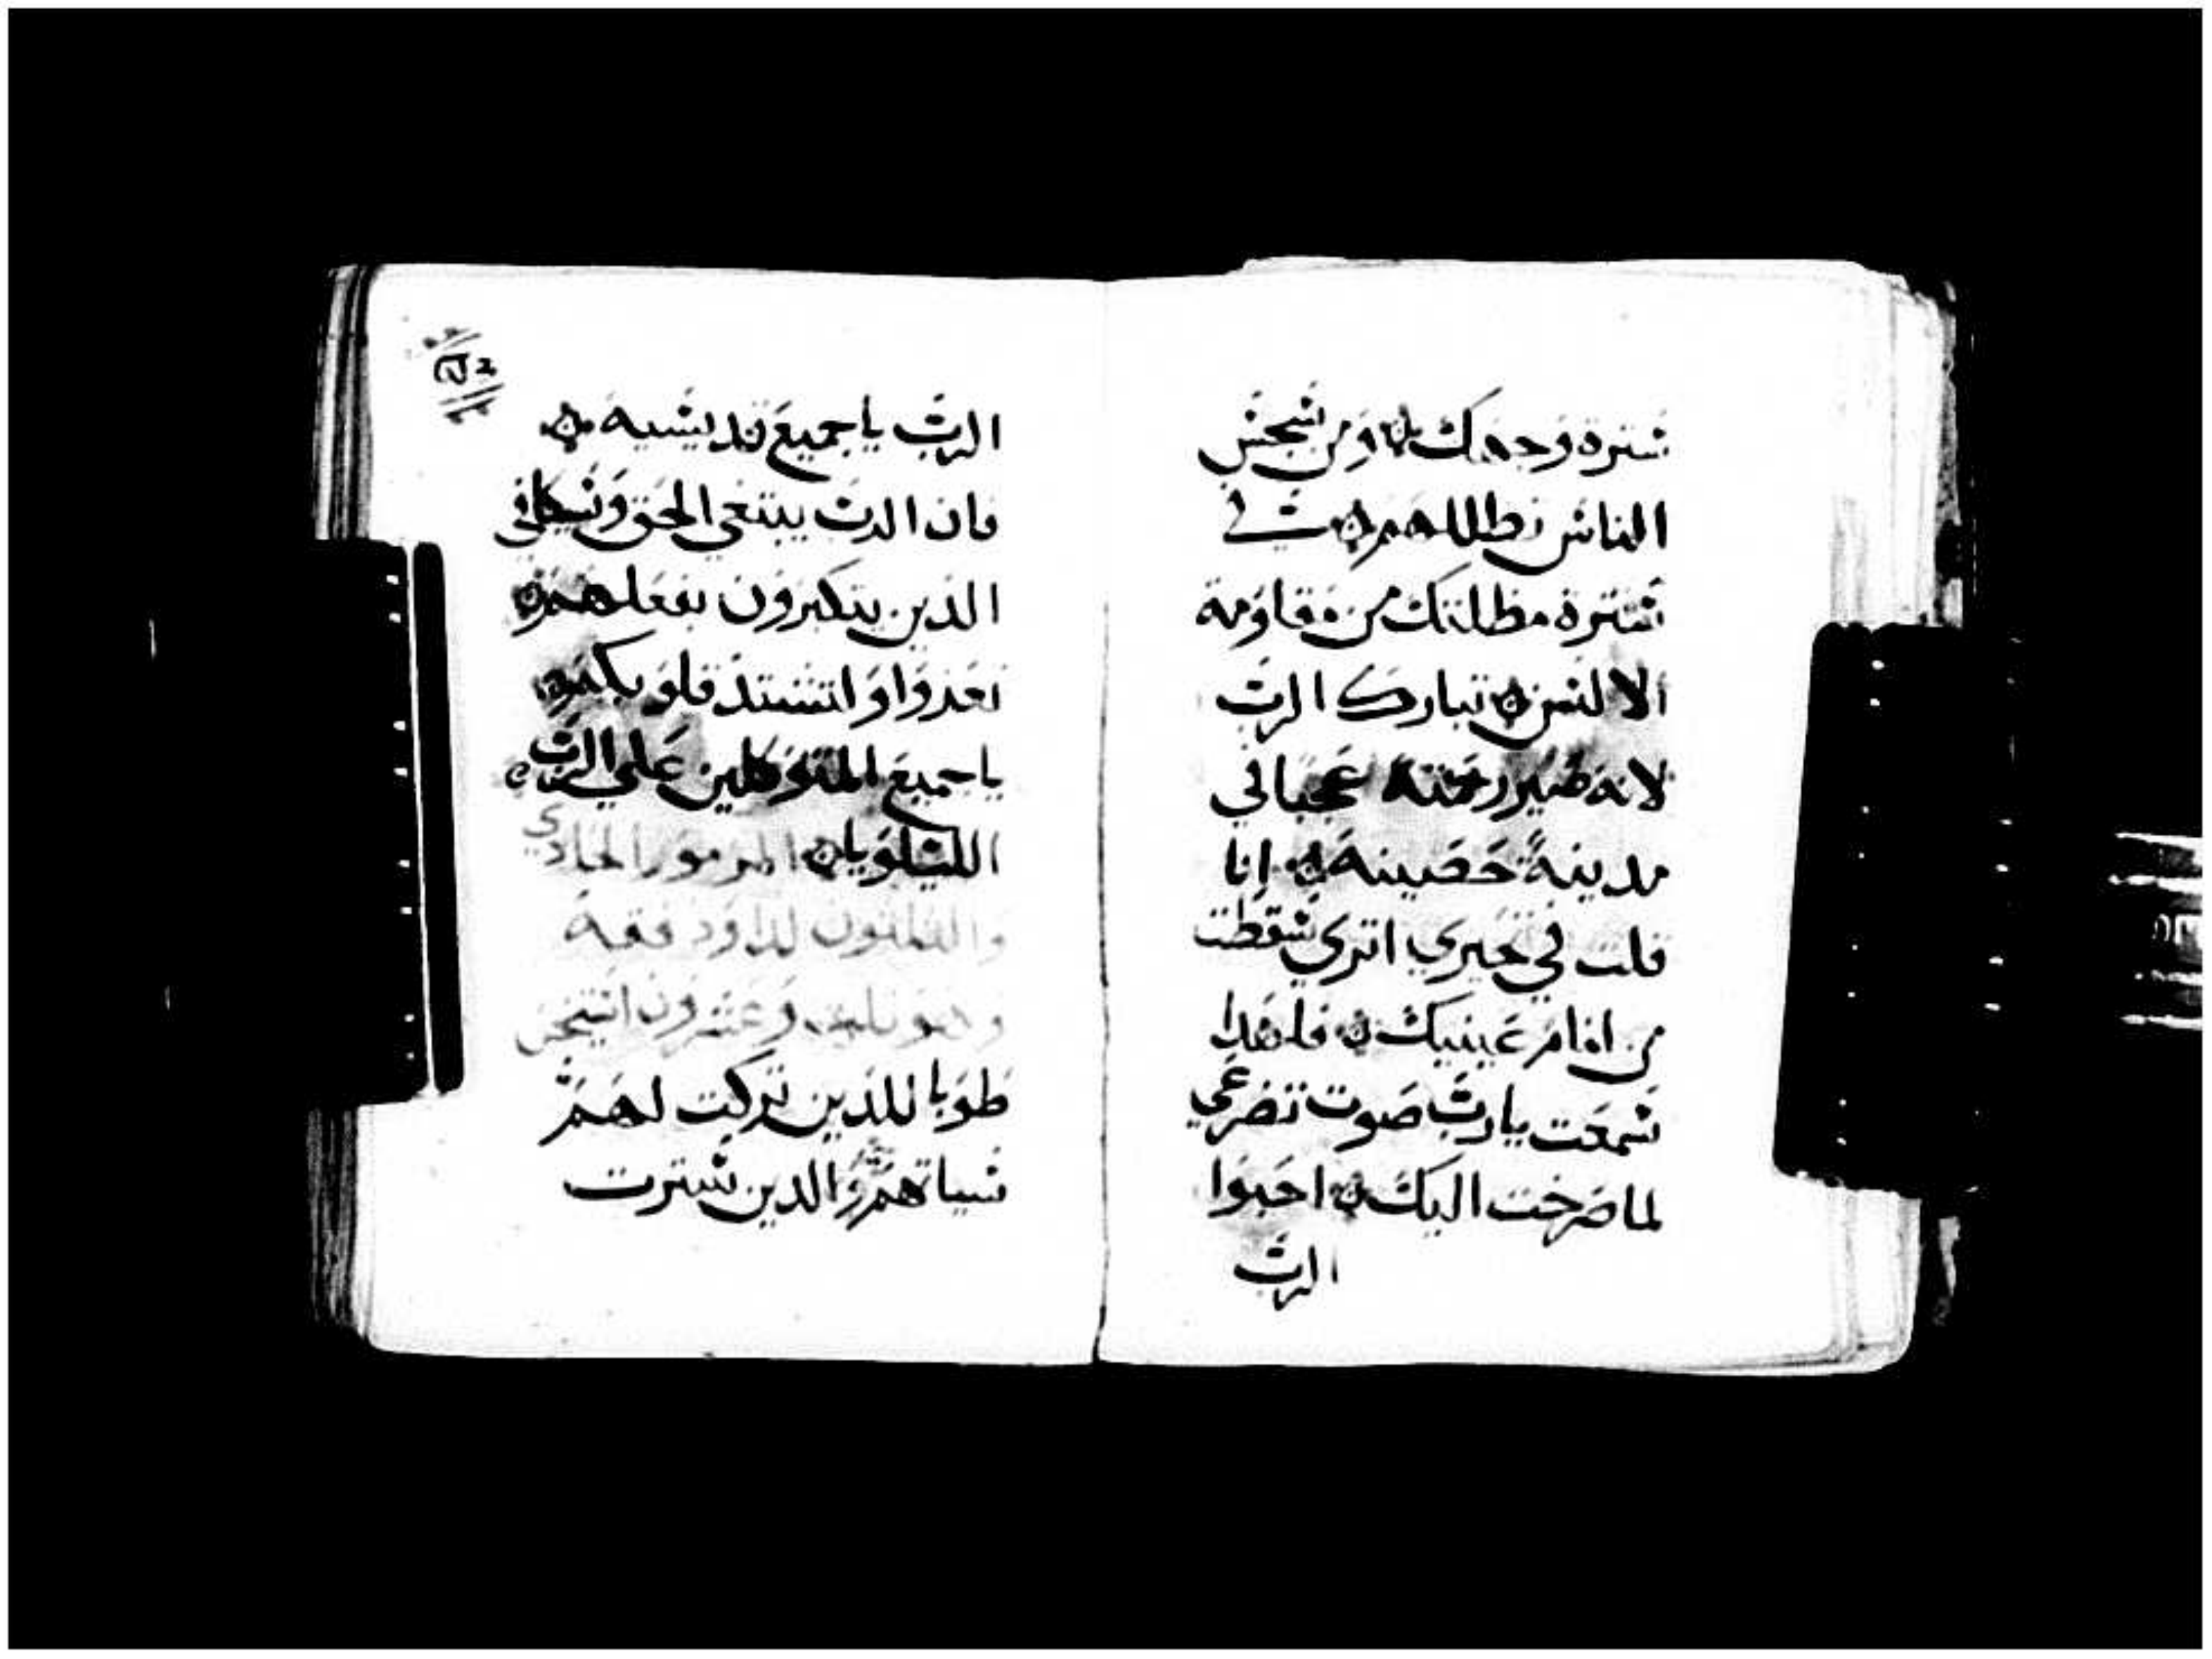 سترة وجهك ۞ ومن سجس
الناس تظللهم ۞ في
سترة مظلتك من مقاومة
الالسن ۞ تبارك الرب
لانه صير رحمته عجبا في
مدينة حصينة ۞ انا
قلت في حيرتي اتري سقطت
من امام عينيك ۞ فلهدا
سمعت يارب صوت تضرعي
لما صرخت اليك ۞ احبوا
الرب
الرب ياجميع قديسيه ۞
فان الرب يبتغي الحق ويكافي
الذين يتكبرون بفعلهم ۞
تعزوا واتشتد قلوبكم ۞
ياجميع المتوكلين علي الرب ۞
الليلويا ۞ المزمور الحادي
والثلثون لداود فقه
وهو وعشرون استيخن
طوبا للذين تركت لهم
سياتهم والدين سترت